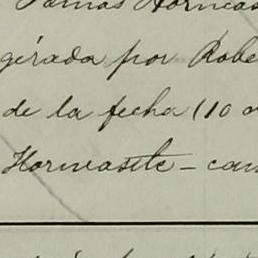 Tomás Horncas
girada por Robe
de la fecha (10 d
Horncastle - can